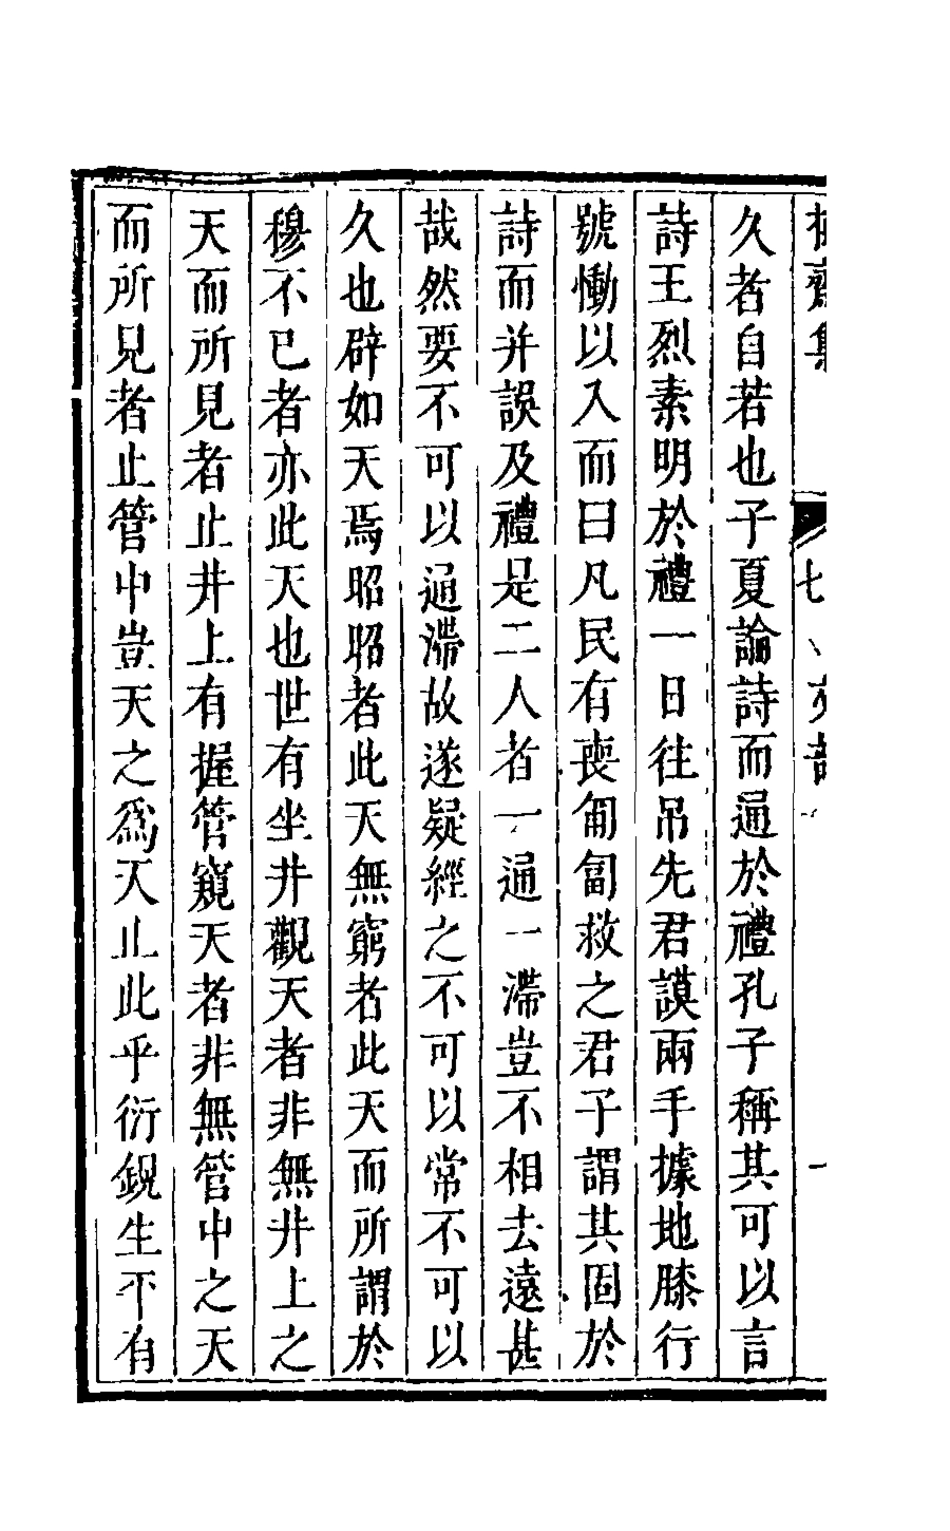 久者自若也子夏論詩而通於禮孔子稱其可以言
詩王烈素明於禮一日往吊先君謨兩手據地膝行
號慟以入而曰凡民有喪匍匐救之君子謂其固於
詩而并誤及禮是二人者一通一滯豈不相去遠甚
哉然要不可以通滯故遂疑經之不可以常不可以
久也辟如天焉昭昭者此天無窮者此天而所謂於
穆不已者亦此天也世有坐井觀天者非無井上之
天而所見者止井上有握管窺天者非無管中之天
而所見者止管中豈天之爲天止此乎衍鋧生平有